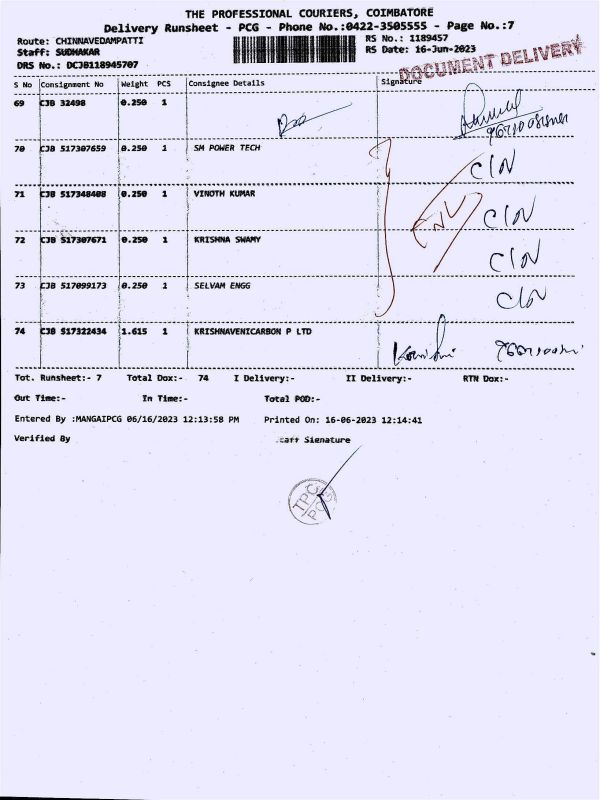 THE PROFESSIONAL COURIERS, COIMBATORE
Delivery Runsheet - PCG - Phone No.:0422-3505555 - Page No.:7
Route: CHINNAVEDAMPATTI
RS No.: 1189457
Staff: SUDHAKAR
RS Date: 16-Jun-2023
DRS No.: DCJB118945707
DOCUMENT DELIVERY
S No Consignment No Weight PCS Consignee Details Signature
69 CJB 32498 0.250 1
70 CJB 517307659 0.250 1 SM POWER TECH CIN
71 CJB 517348408 0.250 1 VINOTH KUMAR CIN
72 CJB 517307671 0.250 1 KRISHNA SWAMY CIN
73 CJB 517099173 0.250 1 SELVAM ENGG CIN
74 CJB 517322434 1.615 1 KRISHNAVENICARBON P LTD
Tot. Runsheet:- 7 Total Dox:- 74 I Delivery:- II Delivery:- RTN Dox:-
Out Time:- In Time:- Total POD:-
Entered By :MANGAIPCG 06/16/2023 12:13:58 PM Printed On: 16-06-2023 12:14:41
Verified By Signature
TPC